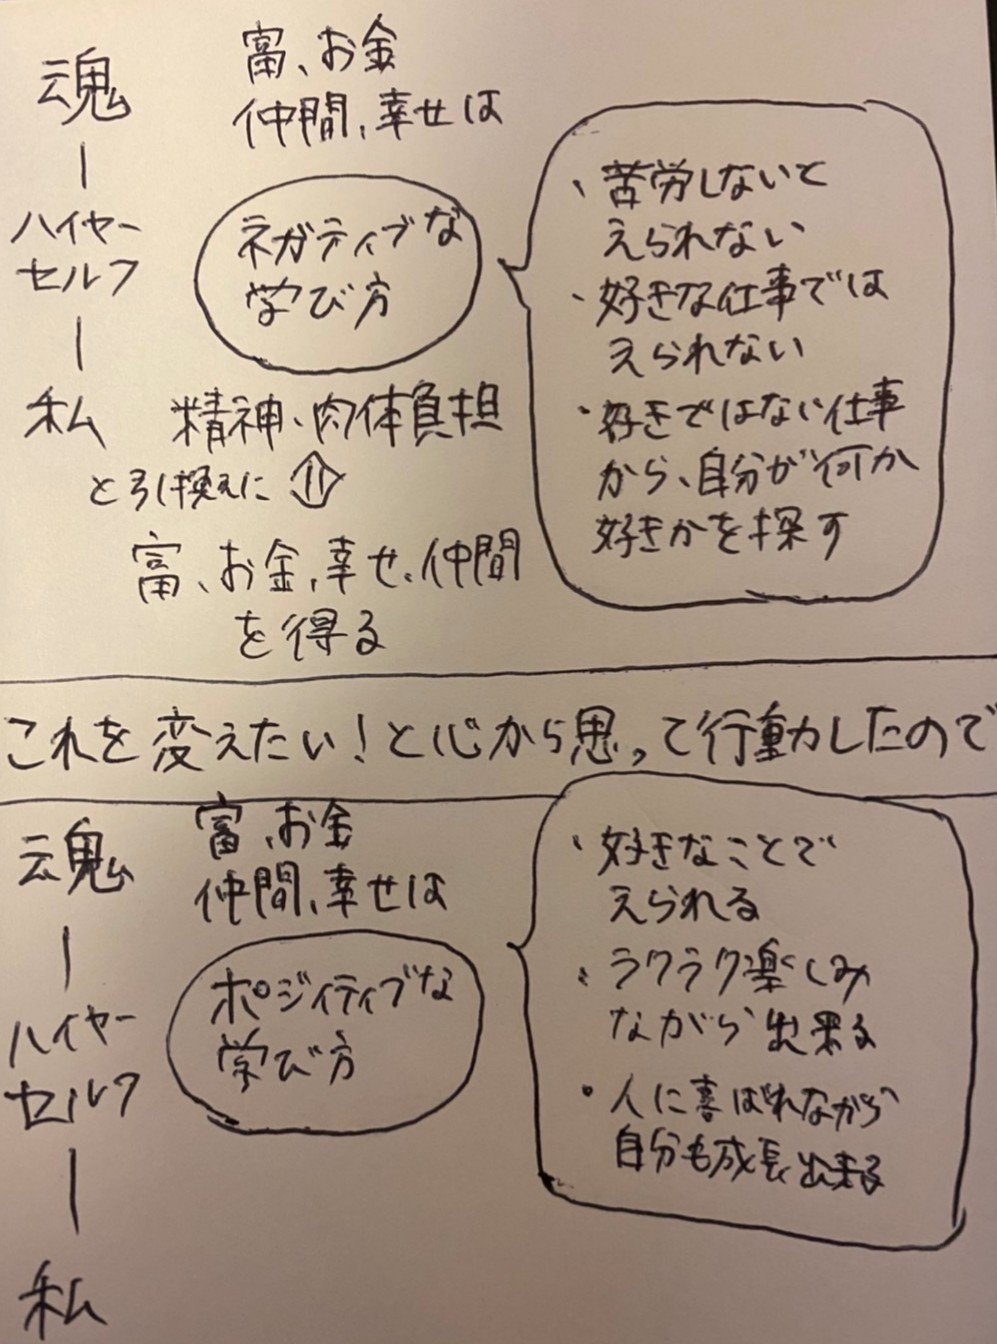 魂
|
ハイヤー
セルフ
|
私
富、お金
仲間、幸せは
ネガティブな
学び方
精神、肉体負担
と引き換えに
富、お金、幸せ、仲間
を得る
・苦労しないと
えられない
・好きな仕事では
えられない
・好きではない仕事
から、自分が何か
好きかを探す
これを変えたい！と心から思って行動したので
魂
|
ハイヤー
セルフ
|
私
富、お金
仲間、幸せは
ポジィティブな
学び方
・好きなことで
えられる
・ラクラク楽しみ
ながら出来る
・人に喜ばれながら
自分も成長出来る